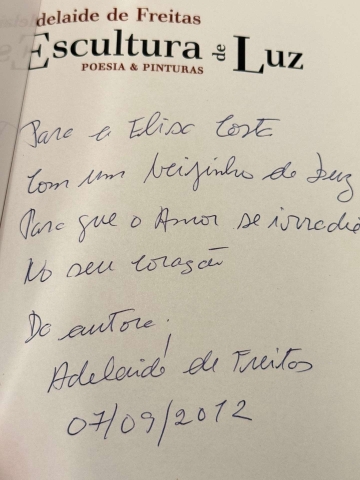 Adelaide de Freitas
Escultura de Luz
POESIA & PINTURAS
Para a Elisa Costa
Com um beijinho de Luz
Para que o Amor se irradie
No seu coração
Da autora,
Adelaide de Freitas
07/09/2012